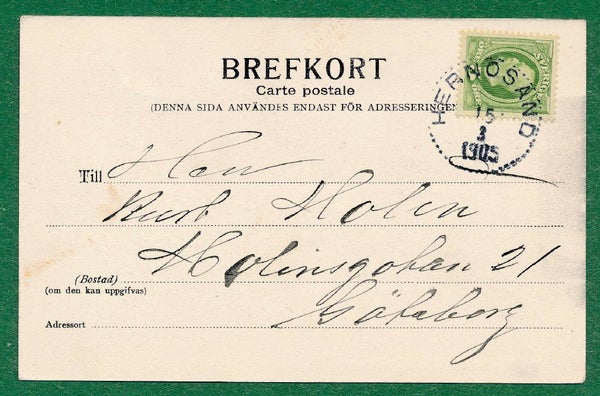 BREFKORT
Carte postale
(DENNA SIDA ANVÄNDES ENDAST FÖR ADRESSERINGEN
HERNÖSAND
15
3
1905
Till Herr
Kurt Molin
Molinsgatan 21
(Bostad)
(om den kan uppgifvas)
Göteborg
Adressort